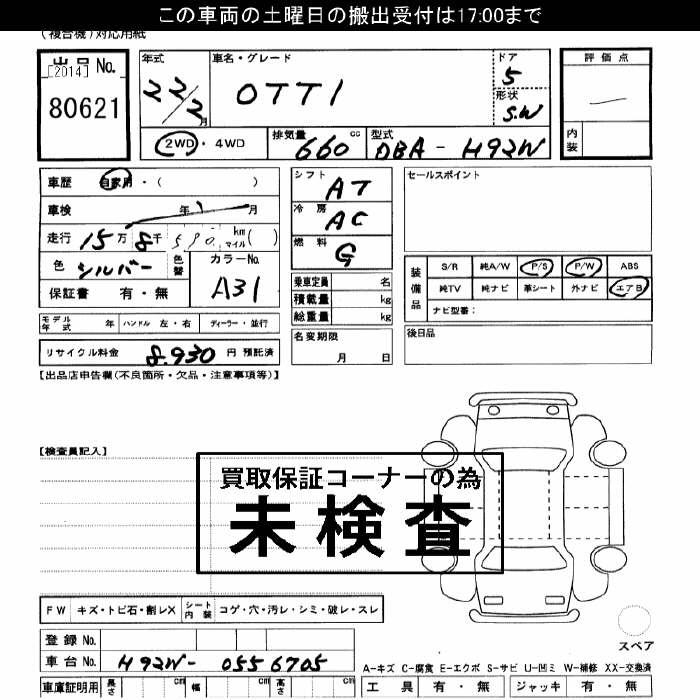 この車両の土曜日の搬出受付は17:00まで
(複合機)対応用紙
出品 No.
[2014]
80621
年式 22/2 月
車名・グレード OTTI
ドア 5
形状 S.W
2WD ・ 4WD
排気量 660 cc
型式 DBA - H92W
評価点
内装
車歴 自家用・( )
車検 年 月
走行 15万 8千 590 km マイル ( )
色 シルバー 色替
カラーNo. A31
保証書 有・無
シフト AT
冷房 AC
燃料 G
セールスポイント
乗車定員 名
積載量 kg
総重量 kg
装備品
S/R 純A/W P/S P/W ABS
純TV 純ナビ 革シート 外ナビ エアB
ナビ型番:
モデル年式 年 ハンドル 左・右 ディーラー・並行
名変期限 月 日
後日品
リサイクル料金 8,930 円 預託済
【出品店申告欄(不良箇所・欠品・注意事項等)】
【検査員記入】
買取保証コーナーの為
未検査
FW キズ・トビ石・割レX シート内装 コゲ・穴・汚レ・シミ・破レ・スレ
スペア
登録 No.
車台 No. H92W- 0556705
A-キズ C-腐食 E-エクボ S-サビ U-凹ミ W-補修 XX-交換済
車庫証明用 長さ cm 幅 cm 高さ cm
工具 有・無 ジャッキ 有・無